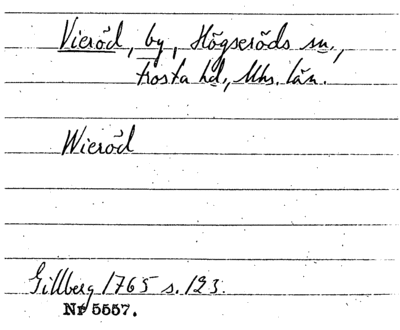 Vieröd, by, Högseröds sn.,
Frosta hd., Mhs. län.
Wieröd
Gillberg 1765 s. 123.
Nr 5557.